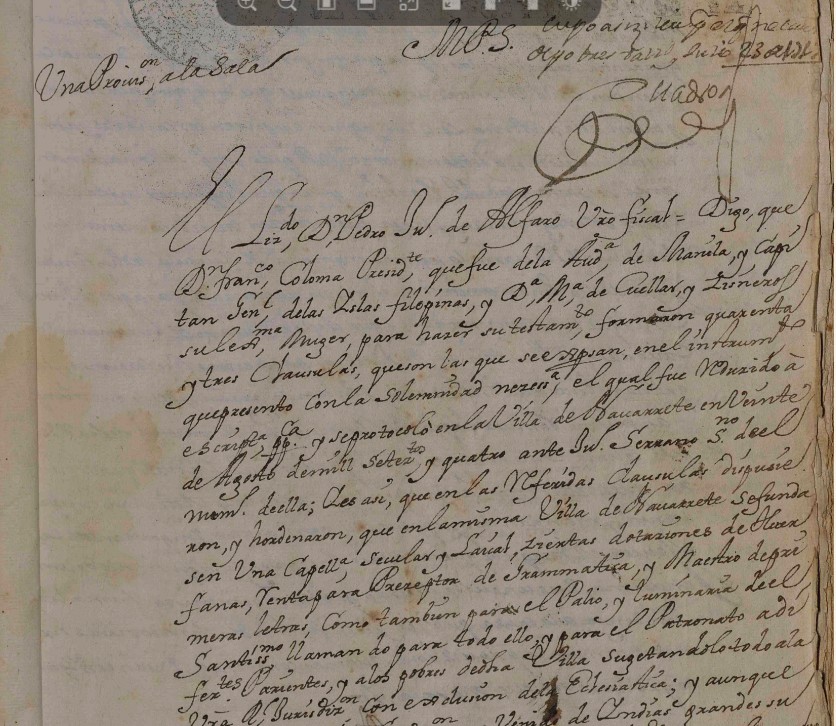 M.P.S.
Una Provis.on a la Sala
Cuadros
El Liz.do D.n Pedro Ju.l de Alfaro Vro fiscal = Digo, que
D.n Fran.co Coloma Presid.te que fue dela Aud.a de Manila, y Capi
tan Gen.l delas Yslas filipinas, y D.a M.a de Cuellar, y Zisneros
su lex.ma Muger, para hazer su testam.to, formaron quarenta
y tres Clausulas, que son las que se expresan, en el instrum.to
que presento con la solemnidad neress.a, el qual fue Reduzido à
escript.a pp.ca y se protocolò en la Villa de Navarrete en Veinte
de Agosto de mill Setez.tos y quatro ante Ju.l Serrano S.no del
num.o de ella; Y es asi, que en las Referidas Clausulas dispusie
ron, y hordenaron, que en la misma Villa de Navarrete se funda
sen Una Capell.a secular y Laical, ziertas dotaziones de Huer
fanas, Renta para Prezeptor de Grammatica, y Maestro de pri
meras letras, Como tambien para el Palio, y luminaria de el
Santiss.mo llamando para todo ello, y para el Patronato a di
fer.tes Parientes, y a los pobres de dha Villa sugetandolo todo a la
Vra R.l Jurisdiz.on con exclusion dela Eclesiastica; y aunque
de Indias grandes su